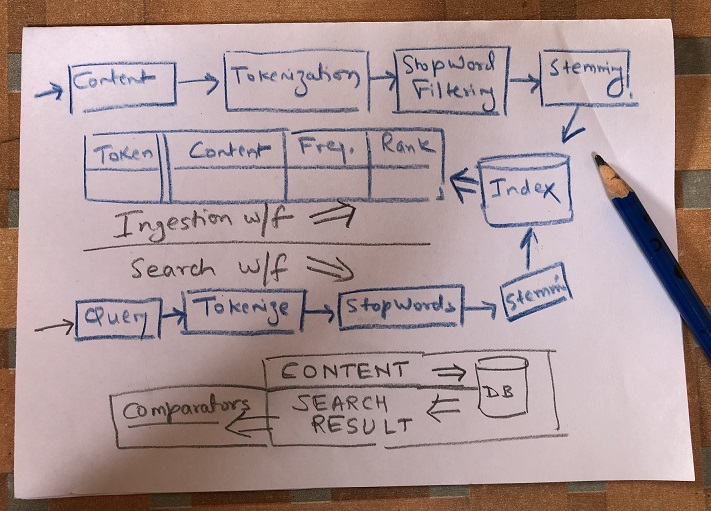 Content
Tokenization
StopWord
Filtering
Stemming
Token Content Freq. Rank
Index
Ingestion w/f
Search w/f
Query
Tokenize
StopWords
Stemmin
CONTENT
DB
Comparators
SEARCH
RESULT